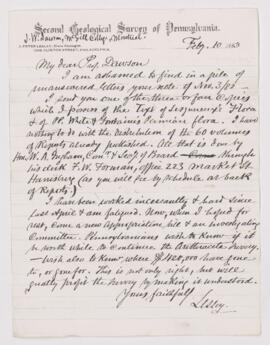 Second Geological Survey of Pennsylvania.
J. W. Dawson, McGill College, Montreal
J. PETER LESLEY, State Geologist
1008 CLINTON STREET, PHILADELPHIA.
Feby. 10, 1883
My dear Prof. Dawson
I am ashamed to find in a pile of
unanswered letters yours note of Nov. 3/82 -
I sent you one of the three or four Copies
which I possess of the Text of Lesquereux's Flora
& of PP. White & Fontaine's Permian flora. I have
nothing to do with the distribution of the 60 volumes
of Reports already published. All that is done by
Wm. A. Ingham, Comr. & Secy of Board through
his clerk F. W. Forman, office 223 Market St.
Harrisburg (as you will see by schedule at back
of Reports.)
I have been worked incessantly & hard since
last April & am fatigued. Now, when I hoped for
rest, come a new Appropriation bill & an Investigating
Committee. Pennsylvanians wish to know if it
be worth while to continue the Anthracite Survey.
- Wish also to know where $ 400,000 have gone
to, or gone for. This is not only right, but will
greatly profit the Survey by making it understood.
Yours faithfully
Lesley